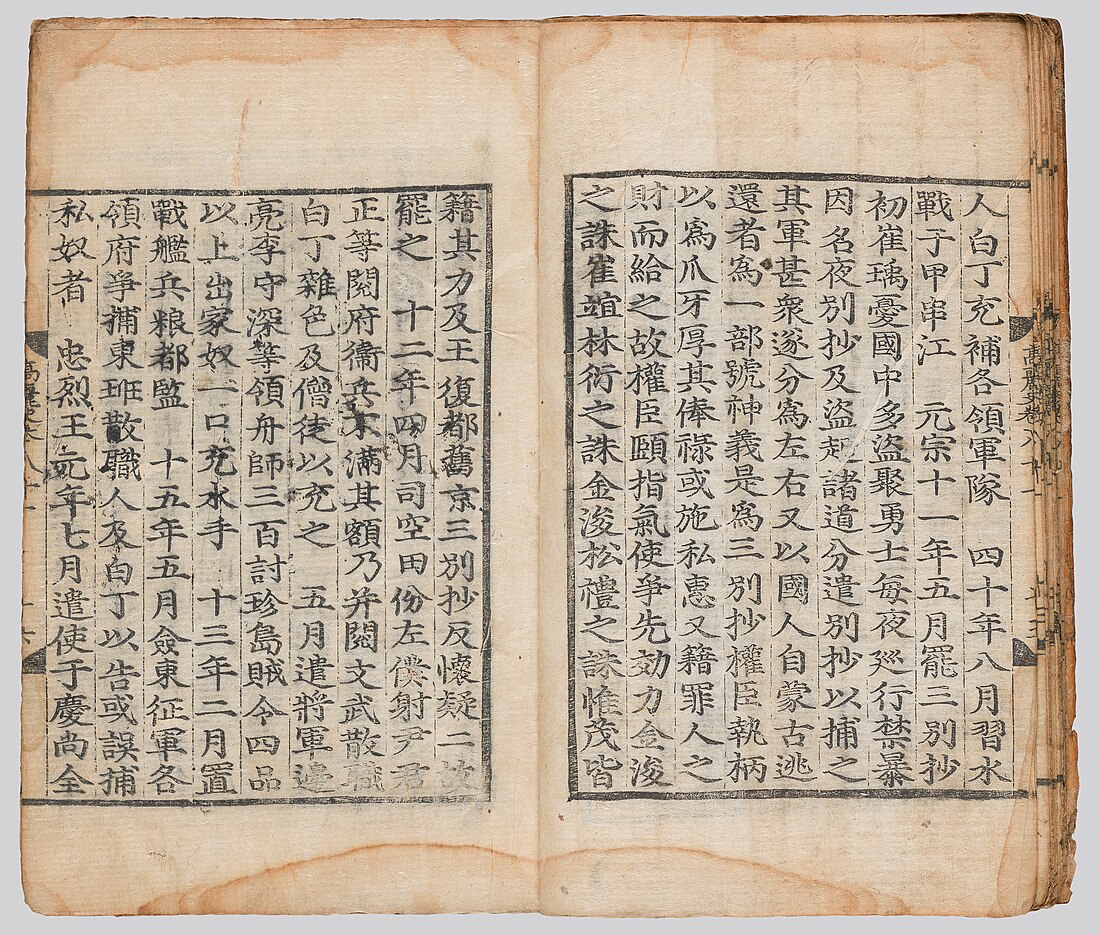 人白丁充補各領軍隊　四十年八月習水
戰于甲串江　元宗十一年五月罷三別抄
初崔瑀憂國中多盜聚勇士每夜巡行禁暴
因名夜別抄及盜起諸道分遣別抄以捕之
其軍甚衆遂分爲左右又以國人自蒙古逃
還者爲一部號神義是爲三別抄權臣執柄
以爲爪牙厚其俸祿或施私惠又籍罪人之
財而給之故權臣頤指氣使爭先効力金浚
之誅崔竩林衍之誅金浚松禮之誅惟茂皆
籍其力及王復都舊京三別抄反懷疑二故
罷之　十二年四月司空田份左僕射尹君
正等閱府衛兵不滿其額乃并閱文武散職
白丁雜色及僧徒以充之　五月遣將軍邊
亮李守深等領舟師三百討珍島賊令四品
以上出家奴一口充水手　十三年二月置
戰艦兵粮都監　十五年五月僉東征軍各
領府爭捕東班散職人及白丁以告或誤捕
私奴者　忠烈王元年七月遣使于慶尙全